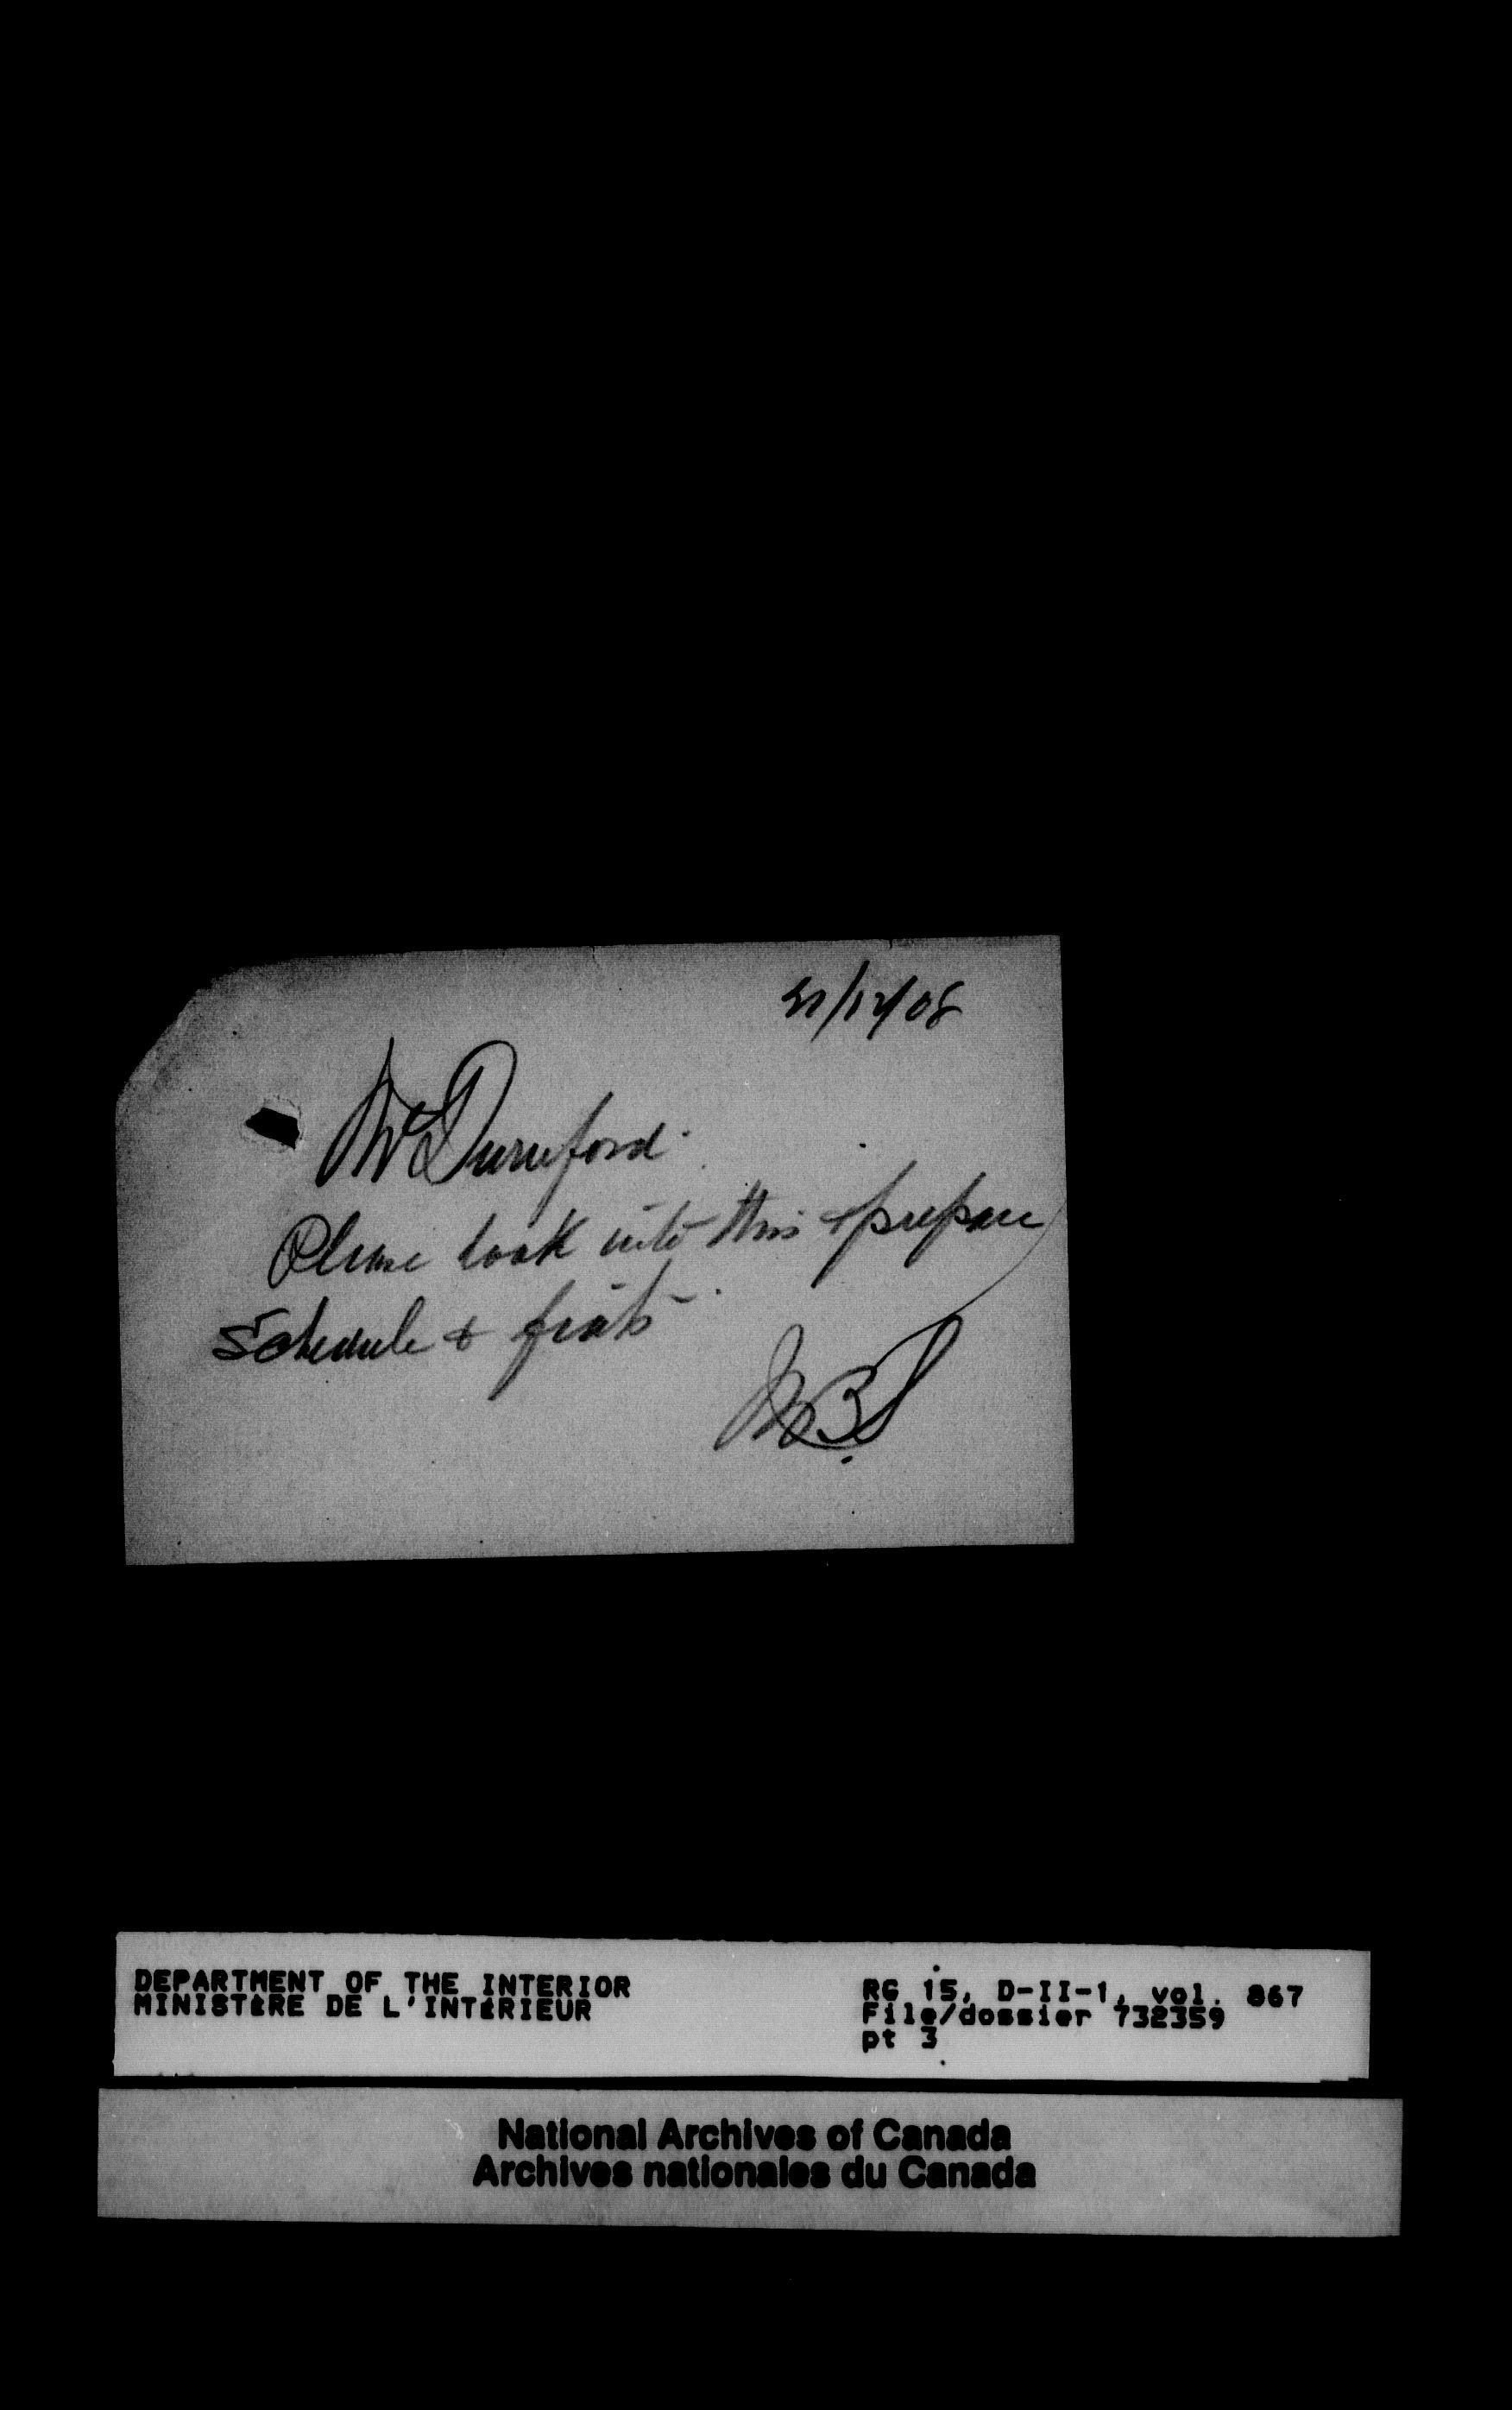 21/12/08
Mr Durnford.
Please look into this & prepare
Schedule & fiats.
NBS
DEPARTMENT OF THE INTERIOR
MINISTÈRE DE L'INTÉRIEUR
RG 15, D-II-1, vol. 867
File/dossier 732359
pt 3
National Archives of Canada
Archives nationales du Canada